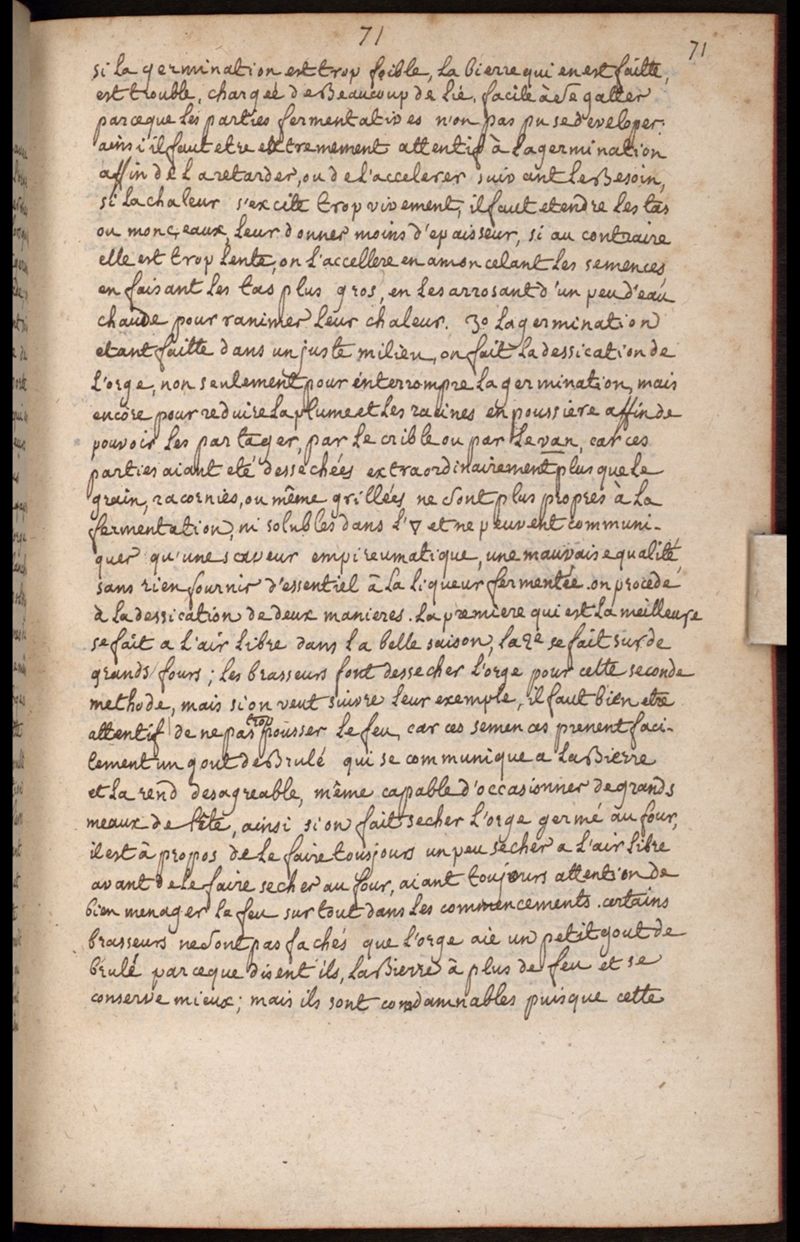 71
71
si la germination est trop foible, la bierre qui en est faitte,
est trouble, chargée de Beaucoup de lie, facile à se gatter
parceque les parties fermentatives n'on pas pu se developer.
ainsi il faut etre extremement attentif à la germination
affin de la retarder, ou de l'accelerer suivant le Besoin,
si la chaleur s'excite trop vivement, il faut etendre les tas
ou monceaux, leur donner moins d'epaisseur, si au contraire
elle est trop lente, on l'accellere en amoncelant les semences
en faisant les tas plus gros, en les arrosant d'un peu d'eau
chaude pour ranimer leur chaleur. 3o la germination
etant faitte dans un juste milieu, on fait la dessication de
l'orge, non seulement pour interrompre la germination, mais
encore pour reduire la plume et les racines en poussiere affin de
pouvoir les partager, par le crible ou par le van, car ces
parties aiant eté dessechées extraordinairement plus que le
grain, racornies, ou même grillées ne sont plus propres à la
fermentation, ni solubles dans l'▽ et ne peuvent communi-
quer qu'une saveur empireumatique, une mauvaise qualité,
sans rien fournir d'essentiel à la liqueur fermentée. on procede
à la dessication de deux manieres. la premiere qui est la meilleure
se fait a l'air libre dans la belle saison, la 2e se fait sur de
grands fours; les brasseurs font dessecher l'orge pour cette seconde
methode, mais si on veut suivre leur exemple, il faut bien etre
attentif de ne pas trop pousser le feu, car ces semences prenent faci-
lement un gout de Brulé qui se communique a la Bierre
et la rend desagreable, même capable d'occasionner de grands
meaux de tête, ainsi si on fait secher l'orge germé au four,
il est à propos de le faire tousjours un peu secher a l'air libre
avant de le faire secher au four, aiant toujours attention de
bien menager le feu sur tout dans les commencements. certains
brasseurs ne sont pas fachés que l'orge aie un petit gout de
brulé parceque disent ils, la Bierre à plus de feu et se
conserve mieux; mais ils sont condamnables puisque cette